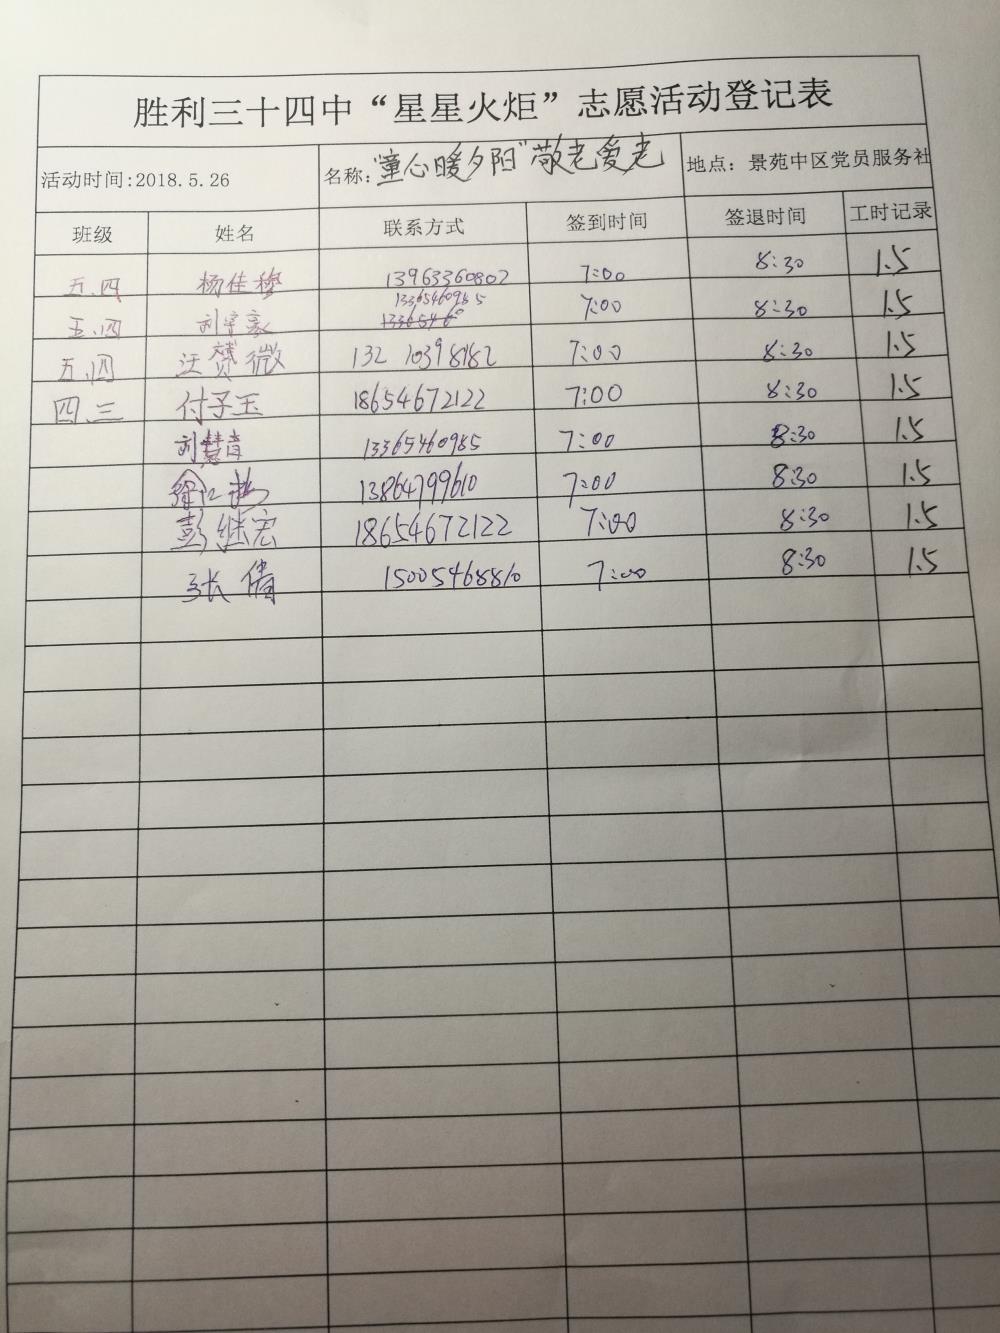 胜利三十四中“星星火炬”志愿活动登记表
活动时间:2018.5.26 名称:“童心暖夕阳”敬老爱老 地点：景苑中区党员服务社
班级 姓名 联系方式 签到时间 签退时间 工时记录
五.四 杨佳穆 13963360802 7:00 8:30 1.5
五.四 刘宇豪 13365460985 7:00 8:30 1.5
五.四 汪赞微 13210398182 7:00 8:30 1.5
四.三 付子玉 18654672122 7:00 8:30 1.5
刘慧青 13365460985 7:00 8:30 1.5
徐 13864799610 7:00 8:30 1.5
彭继宏 18654672122 7:00 8:30 1.5
张倩 15005468810 7:00 8:30 1.5